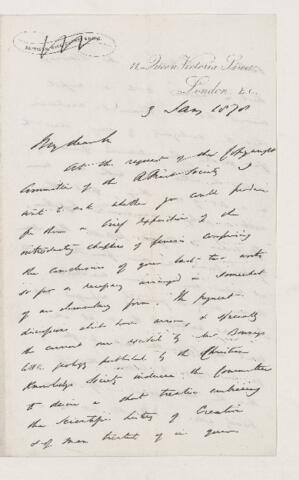 Queen Victoria Street,
London E.C.
3 Jany 1878
My dear
At the request of the Copyright
Committee of the Society I
write to ask whether you could produce
for them a brief exposition of the
introductory chapters of Genesis comprising
the conclusions of your last two works
so far as necessary arranged in somewhat
of an elementary form. The frequent
discussions which have arisen, & specially
the current one excited by Mr
little geology published by the Christian
Knowledge Society induces the Committee
to desire a short treatise embracing
the scientific history of Creation
& of man treated of in your